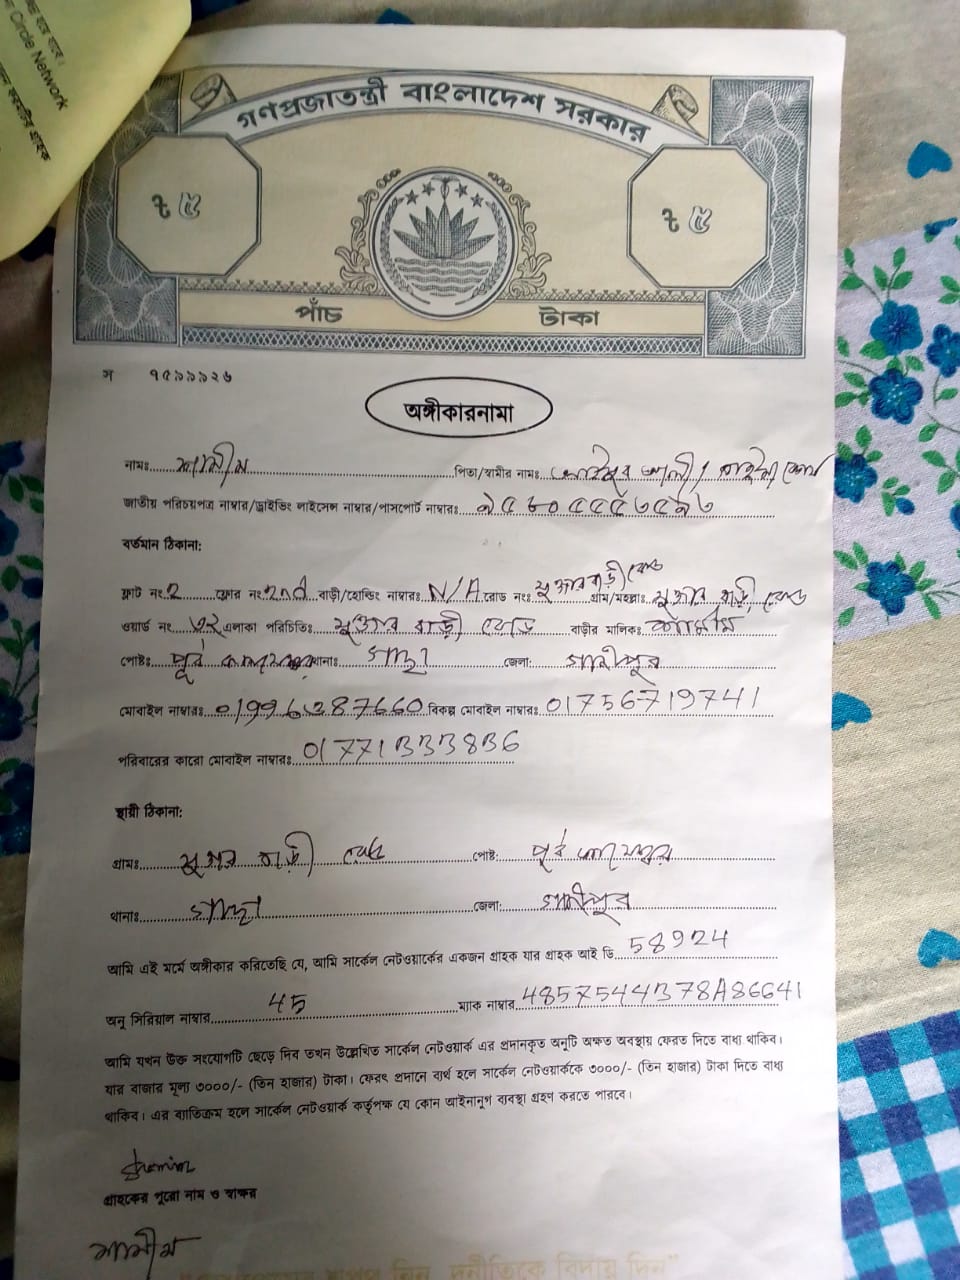 Circle Network
গণপ্রজাতন্ত্রী বাংলাদেশ সরকার
ট ৫ ট ৫
পাঁচ টাকা
স ৭৫৯৯৯২৬
অঙ্গীকারনামা
নামঃ শামীম পিতা/স্বামীর নামঃ আলী /
জাতীয় পরিচয়পত্র নাম্বার/ড্রাইভিং লাইসেন্স নাম্বার/পাসপোর্ট নাম্বারঃ
বর্তমান ঠিকানা:
ফ্লাট নং 2 ফ্লোর নং 2nd বাড়ী/হোল্ডিং নাম্বারঃ N/A রোড নং বাড়ী রোড গ্রাম/মহল্লাঃ বাড়ী রোড
ওয়ার্ড নং ৩২ এলাকা পরিচিতিঃ বাড়ী রোড বাড়ীর মালিকঃ
পোষ্টঃ পূর্ব থানাঃ গাছা জেলা: গাজীপুর
মোবাইল নাম্বারঃ 01996387660 বিকল্প মোবাইল নাম্বারঃ 01756719741
পরিবারের কারো মোবাইল নাম্বারঃ 01771333836
স্থায়ী ঠিকানা:
গ্রামঃ বাড়ী রোড পোষ্ট: পূর্ব
থানাঃ গাছা জেলা: গাজীপুর
আমি এই মর্মে অঙ্গীকার করিতেছি যে, আমি সার্কেল নেটওয়ার্কের একজন গ্রাহক যার গ্রাহক আই ডি 58924
অনু সিরিয়াল নাম্বার 45 ম্যাক নাম্বার 4857544378A86641
আমি যখন উক্ত সংযোগটি ছেড়ে দিব তখন উল্লেখিত সার্কেল নেটওয়ার্ক এর প্রদানকৃত অনুটি অক্ষত অবস্থায় ফেরত দিতে বাধ্য থাকিব।
যার বাজার মূল্য ৩০০০/- (তিন হাজার) টাকা। ফেরৎ প্রদানে ব্যর্থ হলে সার্কেল নেটওয়ার্ককে ৩০০০/- (তিন হাজার) টাকা দিতে বাধ্য
থাকিব। এর ব্যতিক্রম হলে সার্কেল নেটওয়ার্ক কর্তৃপক্ষ যে কোন আইনানুগ ব্যবস্থা গ্রহণ করতে পারবে।
Shamim
গ্রাহকের পুরো নাম ও স্বাক্ষর
শামীম
শপথ নিন, দুর্নীতিকে বিদায় দিন"